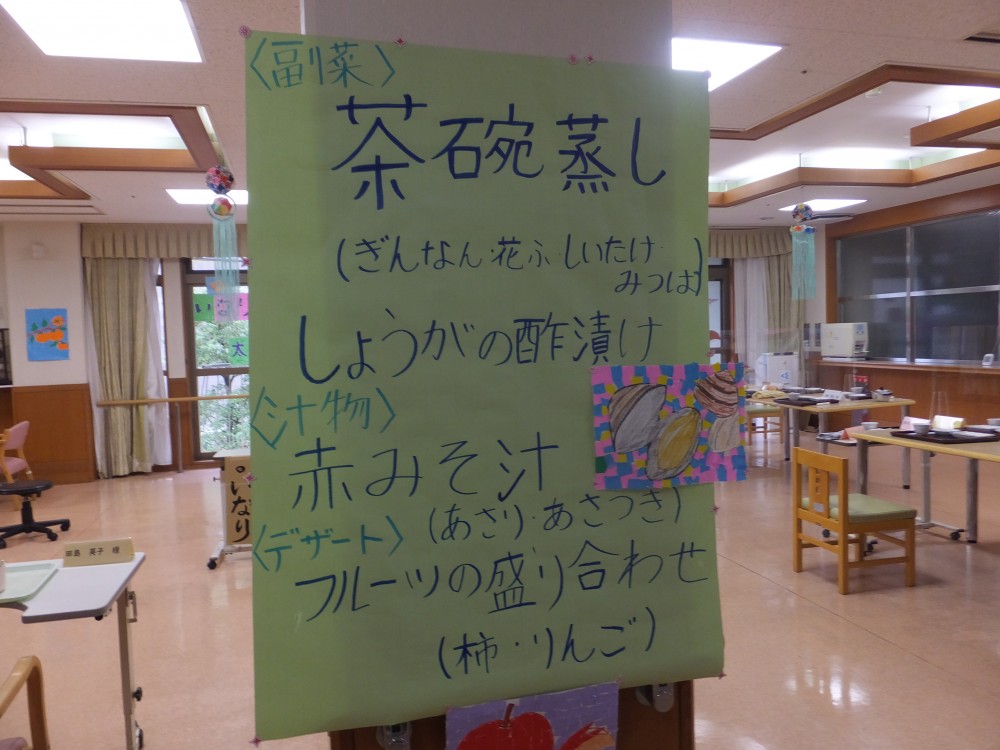 〈副菜〉
茶碗蒸し
(ぎんなん・花ふ・しいたけ・
みつば)
しょうがの酢漬け
〈汁物〉
赤みそ汁
(あさり・あさつき)
〈デザート〉
フルーツの盛り合わせ
(柿・りんご)
いなり
太